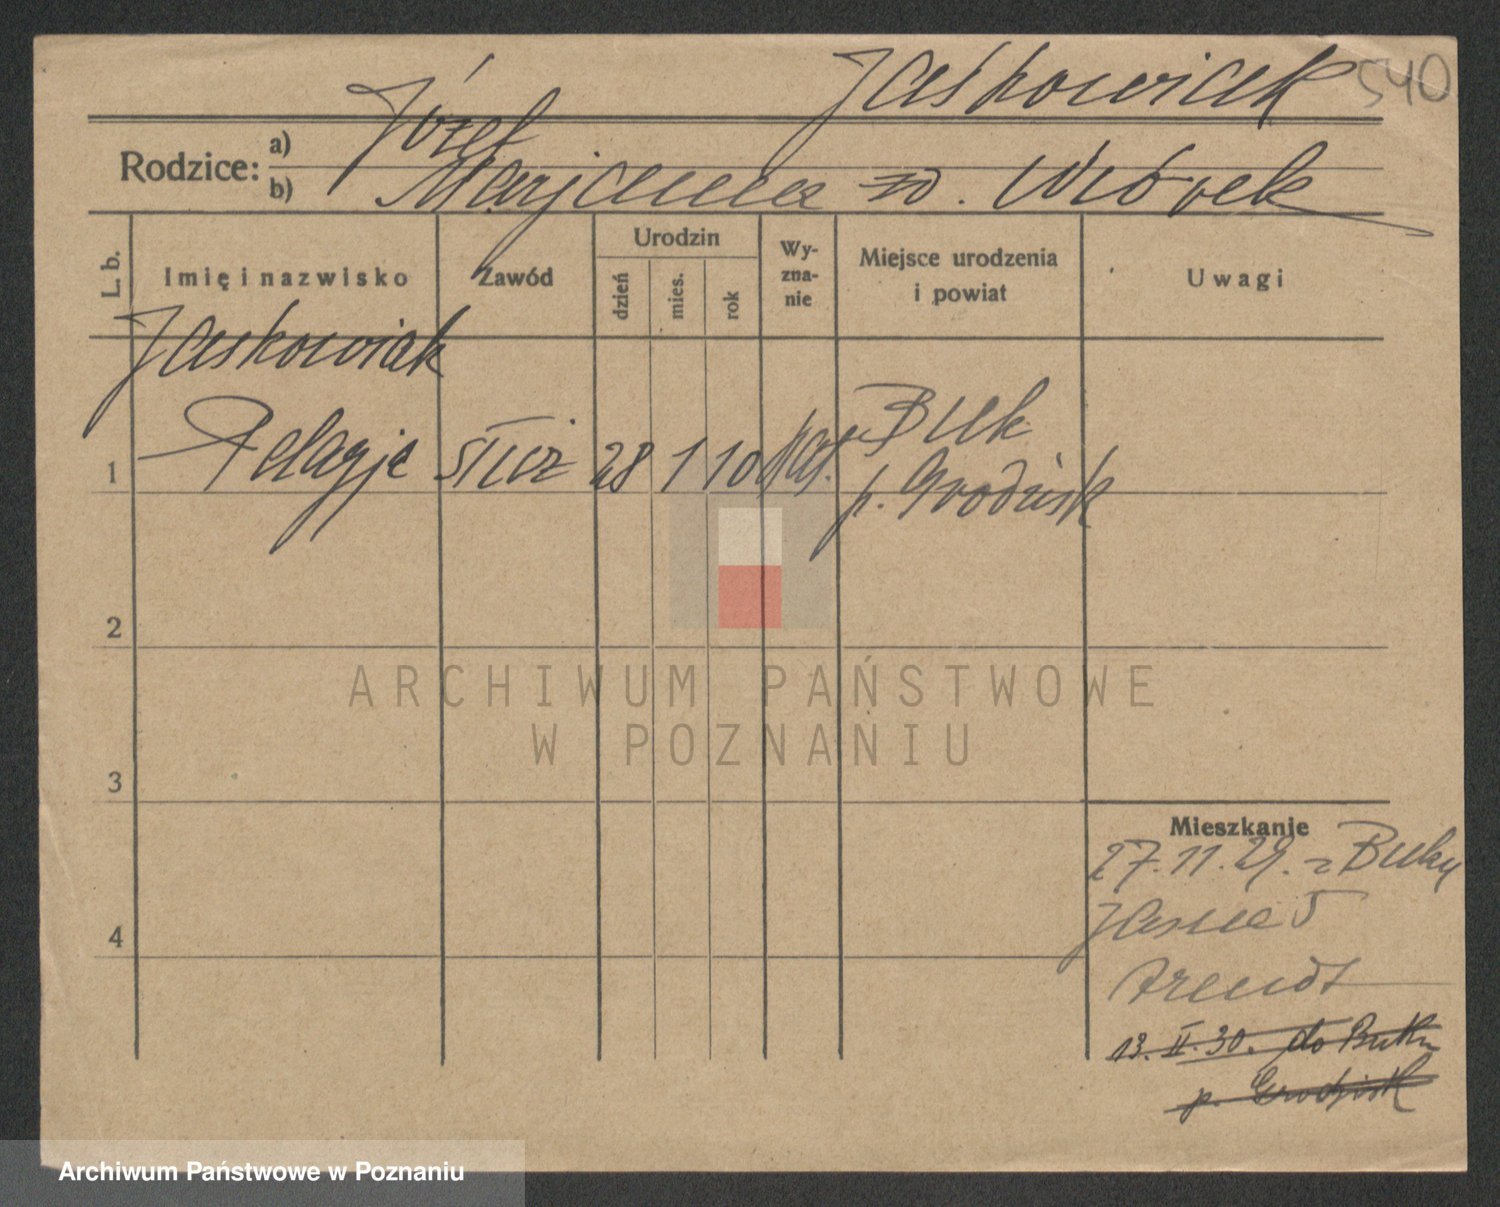 Jaśkowiak 540
Rodzice: a) Józef
b) Marjanna zd. Wiórek
L. b.
Imię i nazwisko
Zawód
Urodzin
dzień
mies.
rok
Wy-
zna-
nie
Miejsce urodzenia
i powiat
Uwagi
Jaskowiak
1 Pelagja służ 28 1 10 kat. Buk
p. Grodzisk
2
3
4
Mieszkanie
27.11.29. z Buku
Jasna 5
Arendt
13. II. 30. do Buku
p. Grodzisk
ARCHIWUM PAŃSTWOWE
W POZNANIU
Archiwum Państwowe w Poznaniu